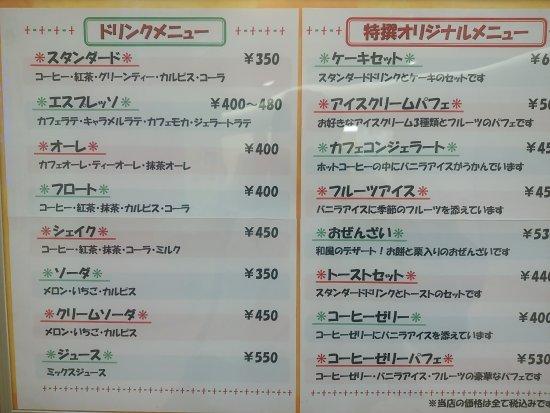 ドリンクメニュー
＊スタンダード＊ ￥350
コーヒー・紅茶・グリーンティー・カルピス・コーラ
＊エスプレッソ＊ ￥400～480
カフェラテ・キャラメルラテ・カフェモカ・ジェラートラテ
＊オーレ＊ ￥400
カフェオーレ・ティーオーレ・抹茶オーレ
＊フロート＊ ￥400
コーヒー・紅茶・抹茶・カルピス・コーラ
＊シェイク＊ ￥450
コーヒー・紅茶・抹茶・コーラ・ミルク
＊ソーダ＊ ￥350
メロン・いちご・カルピス
＊クリームソーダ＊ ￥450
メロン・いちご・カルピス
＊ジュース＊ ￥550
ミックスジュース
特撰オリジナルメニュー
＊ケーキセット＊
スタンダードドリンクとケーキのセットです
＊アイスクリームパフェ＊
お好きなアイスクリーム3種類とフルーツのパフェです
＊カフェコンジェラート＊
ホットコーヒーの中にバニラアイスがうかんでいます
＊フルーツアイス＊
バニラアイスに季節のフルーツを添えています
＊おぜんざい＊
和風のデザート！お餅と栗入りのおぜんざいです
＊トーストセット＊
スタンダードドリンクとトーストのセットです
＊コーヒーゼリー＊ ￥400
コーヒーゼリーにバニラアイスを添えています
＊コーヒーゼリーパフェ＊ ￥530
コーヒーゼリー・バニラアイス・フルーツの豪華なパフェです
※当店の価格は全て税込みです